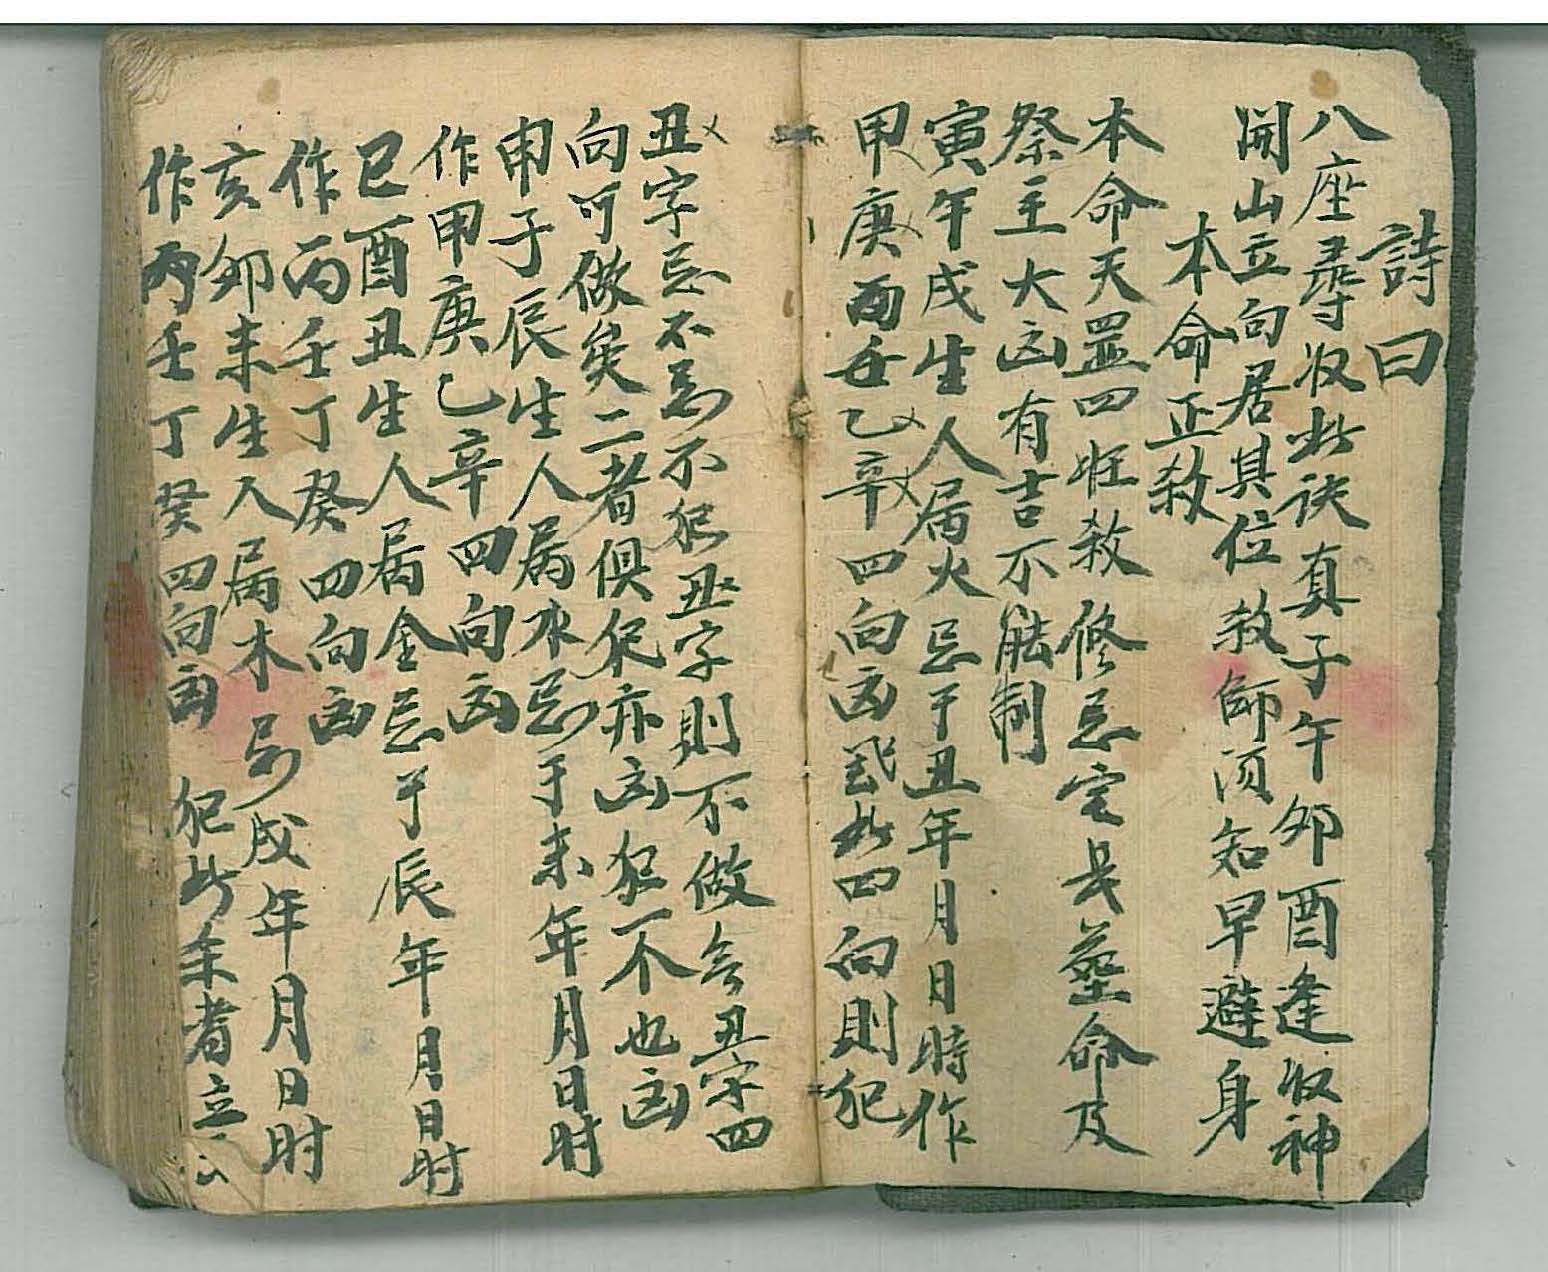 詩曰
八座尋收此訣真子午卯酉逢收神
開山立向居其位救師須知早避身
本命正煞
本命天罡四旺煞修忌宅長塋命及
祭主大凶有吉不能制
寅午戌生人属火忌于丑年月日時作
甲庚丙壬乙辛四向凶我此四向則犯
丑字忌不忌不犯丑字則不做令丑字四
向可做矣二者俱犯亦凶犯一不也凶
申子辰生人属水忌于未年月日时
作甲庚乙辛四向凶
巳酉丑生人属金忌于辰年月日时
作丙壬丁癸四向凶
亥卯未生人属木忌戌年月日时
作丙壬丁癸四向凶 犯此余者立